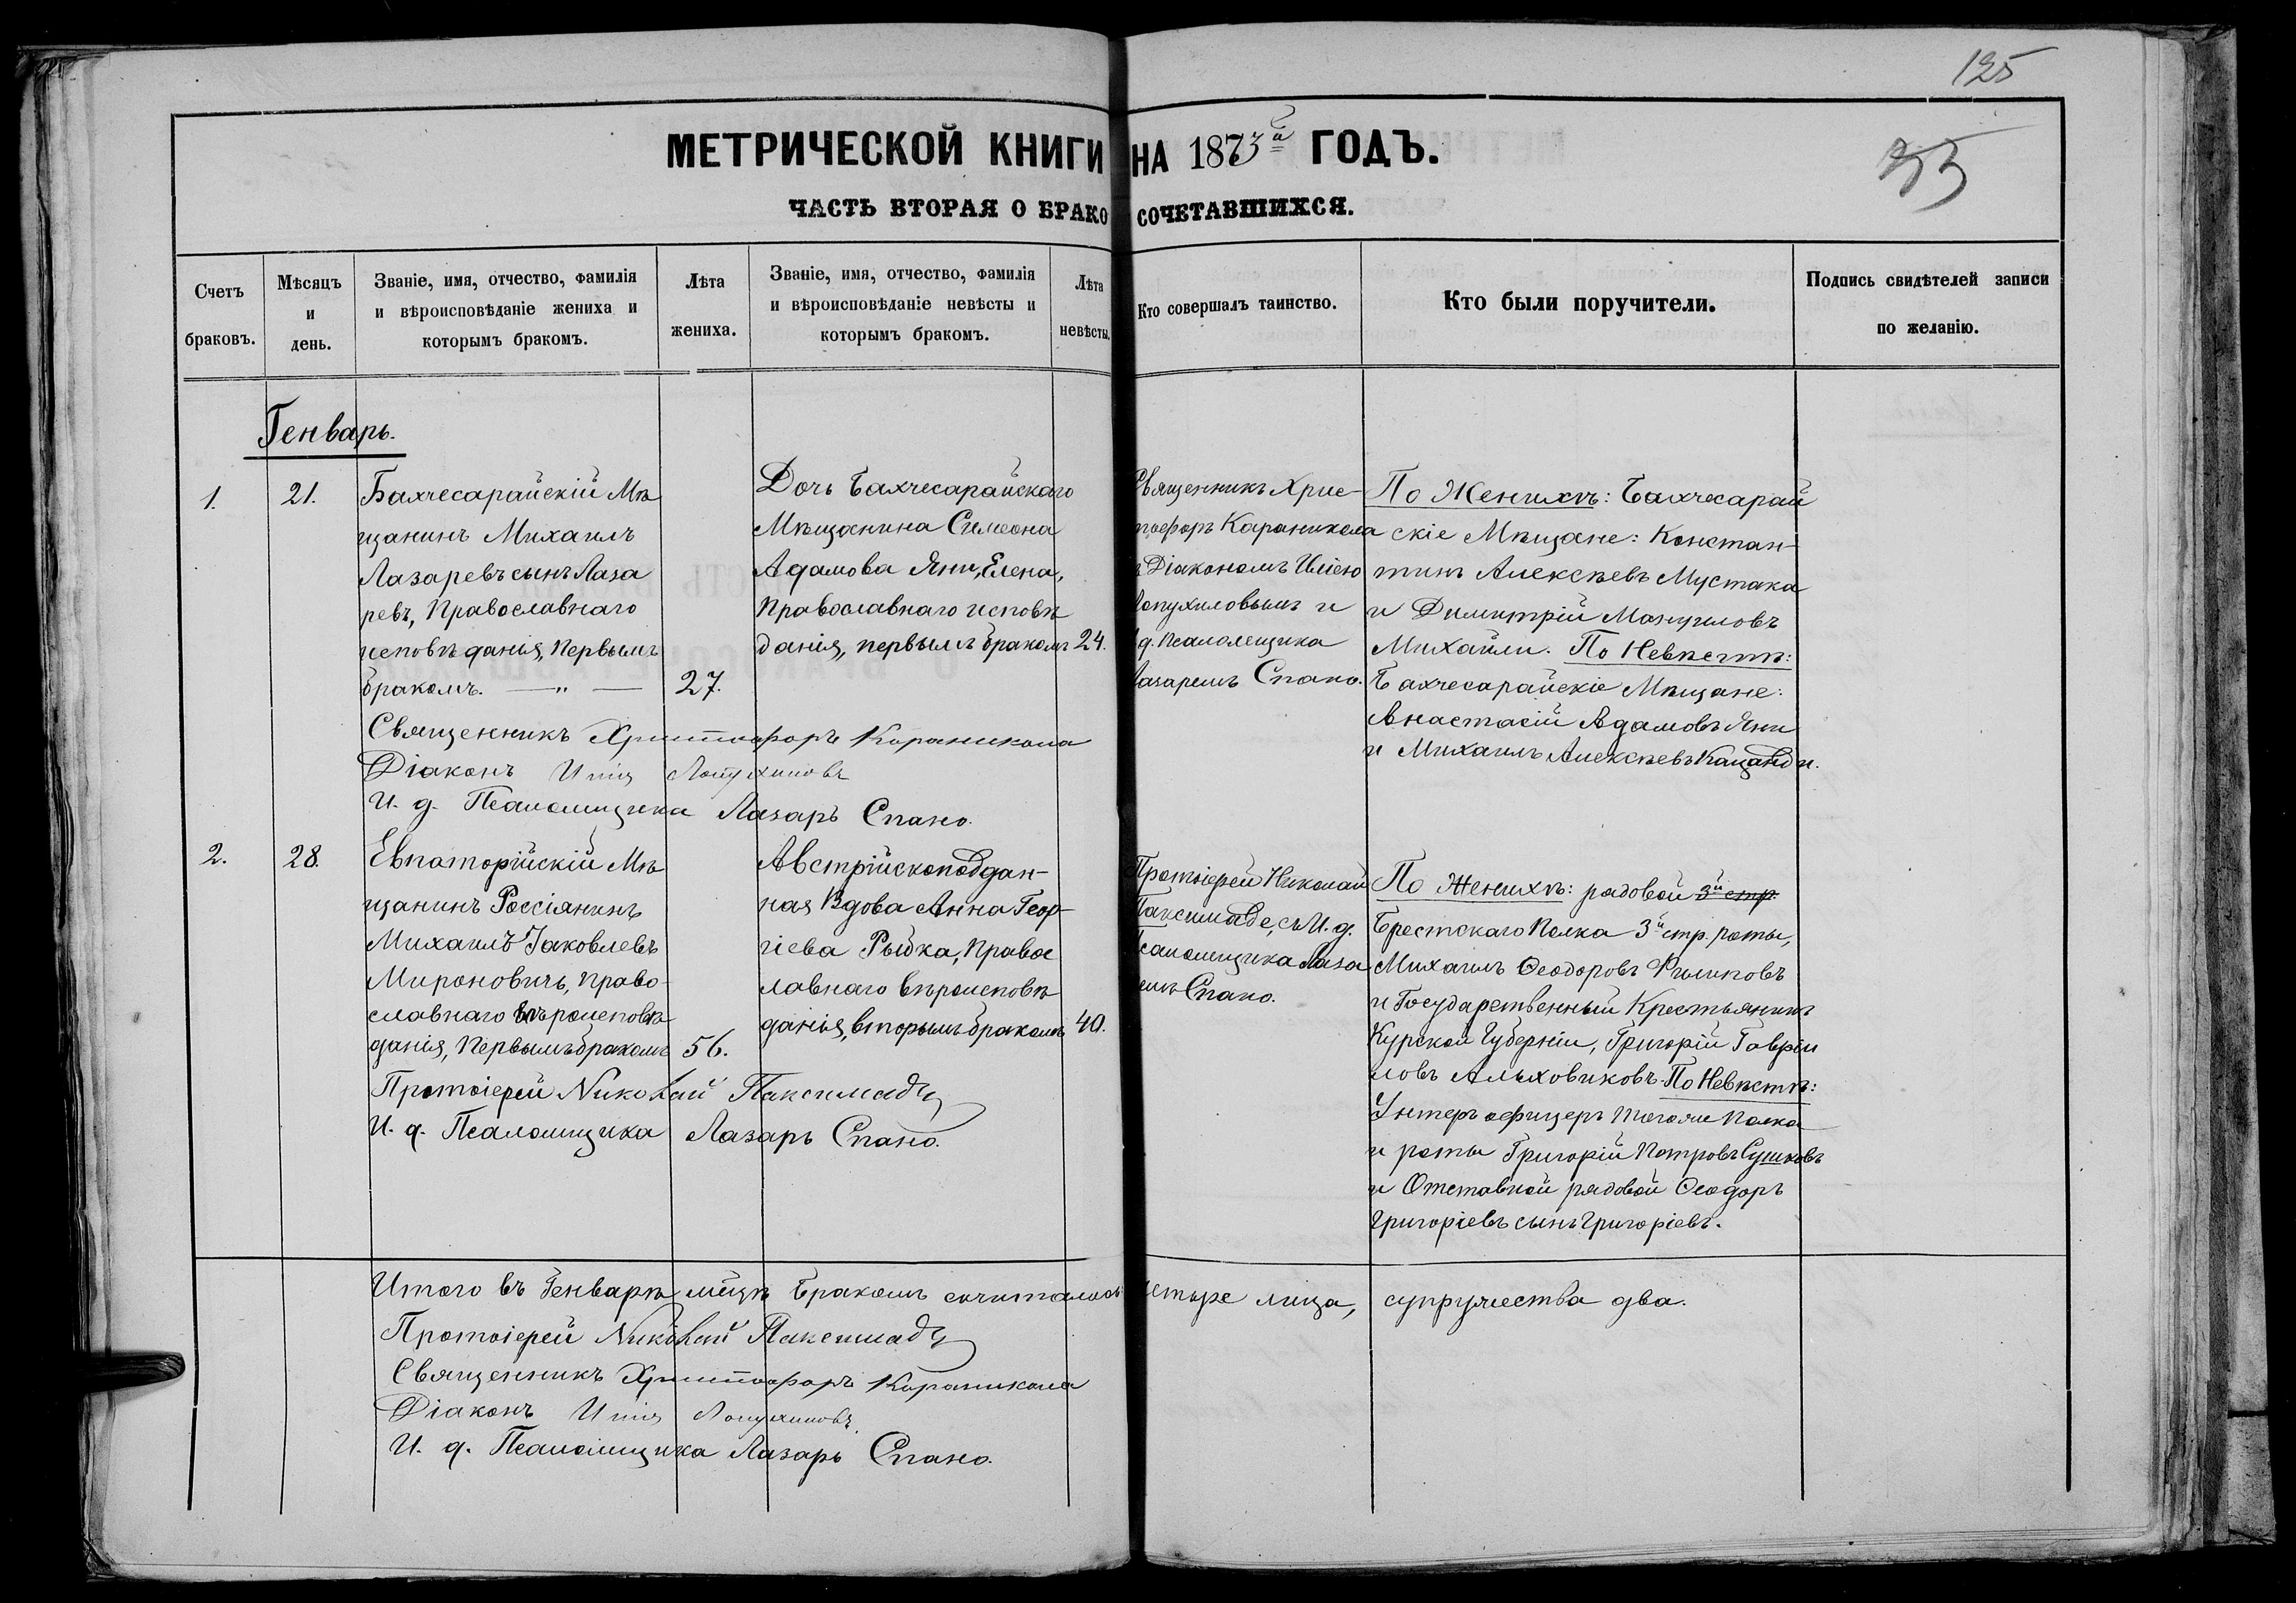 125
33
МЕТРИЧЕСКОЙ КНИГИ НА 1873й ГОДЪ.
ЧАСТЬ ВТОРАЯ О БРАКОСОЧЕТАВШИХСЯ.
Счетъ браковъ.
Мѣсяцъ и день.
Званіе, имя, отчество, фамилія
и вѣроисповѣданіе жениха и
которымъ бракомъ.
Лѣта жениха.
Званіе, имя, отчество, фамилія
и вѣроисповѣданіе невѣсты и
которымъ бракомъ.
Лѣта невѣсты.
Кто совершалъ таинство.
Кто были поручители.
Подпись свидѣтелей записи
по желанію.
Генварь.
1.
21.
Бахчесарайскій Мѣ
щанинъ Михаилъ
Лазаревъ сынъ Лаза
ревъ, Православнаго
исповѣданія, Первымъ
бракомъ. — „ —
27.
Дочь Бахчесарайскаго
Мѣщанина Симеона
Адамова Яни, Елена,
Православнаго исповѣ
данія, первымъ бракомъ
24.
Священникъ Хрис-
тофоръ Караникола
Діакономъ Иліею
Лопухиловымъ и
д. Псаломщика
Лазаремъ Спано.
По Женихѣ: Бахчесарай
скіе Мѣщане: Констан-
тинъ Алексѣевъ Мустака
и Димитрій Мануиловъ
Михайли. По Невѣстѣ:
Бахчесарайскіе Мѣщане:
Анастасій Адамовъ Яни
и Михаилъ Алексѣевъ Кацанди.
Священникъ Христофоръ Караникола
Діаконъ Илія Лопухиновъ
И. д. Псаломщика Лазарь Спано.
2.
28.
Евпаторійскій Мѣ
щанинъ Россіянинъ
Михаилъ Іаковлевъ
Мироновичъ, Право-
славнаго Вѣроисповѣ
данія, Первымъ бракомъ
56.
Австрійскоподдан-
ная Вдова Анна Геор-
гіева Рыбка, Правос
лавнаго вѣроисповѣ
данія, вторымъ бракомъ
40.
Протоіерей Николай
Паксимаде, съ И. д.
Псаломщика Лаза
емъ Спано.
По Женихѣ: рядовой 3й стр.
Брестскаго Полка 3й стр. роты,
Михаилъ Ѳеодоровъ Филиповъ
и Государственный Крестьянинъ
Курской Губерніи, Григорій Гавріи
ловъ Альховиковъ. По Невѣстѣ:
Унтеръ офицеръ тогоже Полка
и роты Григорій Петровъ Сушковъ
и Отставной рядовой Ѳеодоръ
Григоріевъ сынъ Григоріевъ.
Протоіерей Николай Паксимади
И. д. Псаломщика Лазарь Спано.
Итого въ Генварѣ мѣцѣ Бракомъ сочиталось четыре лица, супружества два.
Протоіерей Николай Паксимади
Священникъ Христофоръ Караникола
Діаконъ Илія Лопухиновъ
И. д. Псаломщика Лазарь Спано.